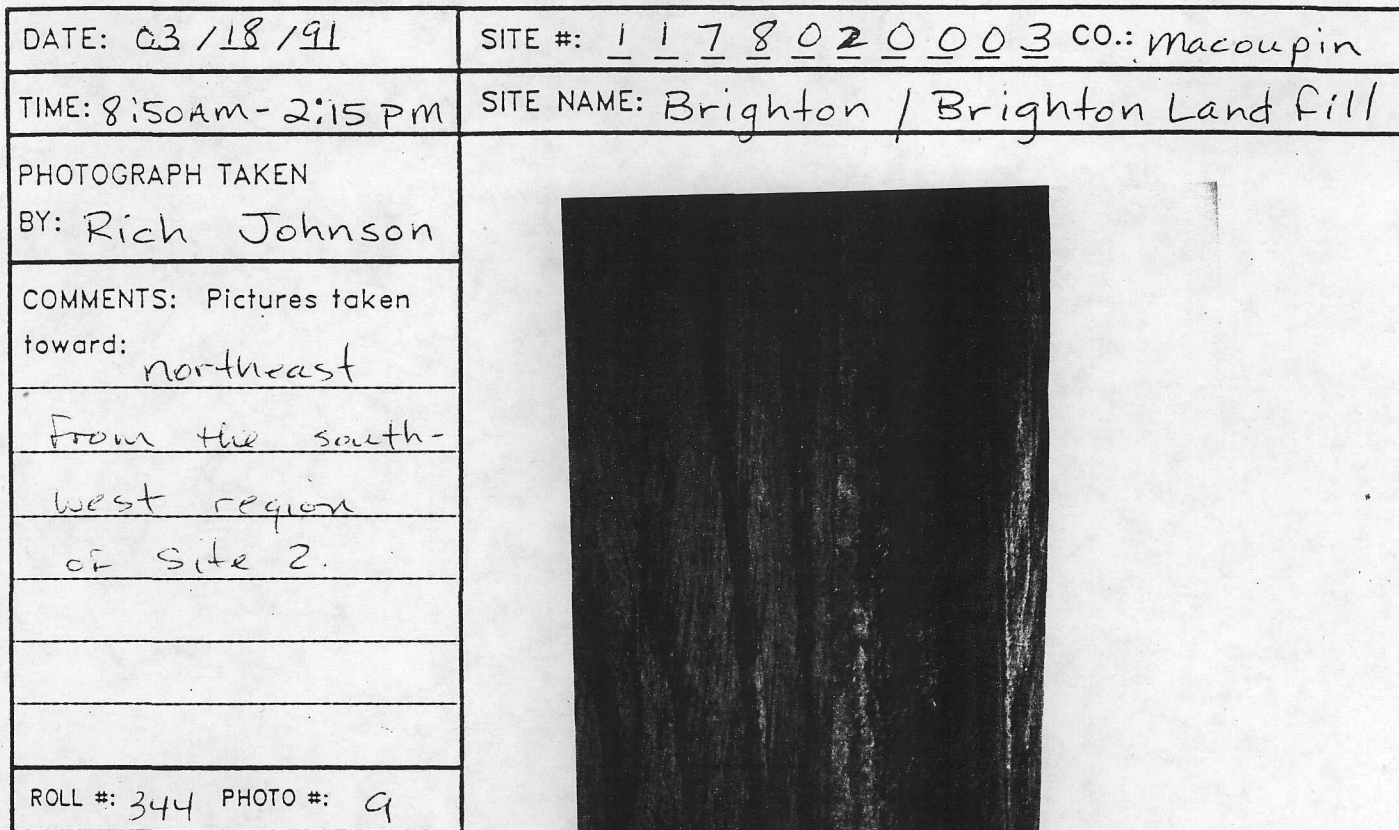 DATE: 03/18/91
SITE #: 1178020003 CO.: Macoupin
TIME: 8:50AM-2:15PM
SITE NAME: Brighton / Brighton Land fill
PHOTOGRAPH TAKEN
BY: Rich Johnson
COMMENTS: Pictures taken
toward: northeast
From the south-
west region
of Site 2.
ROLL #: 344 PHOTO #: 9